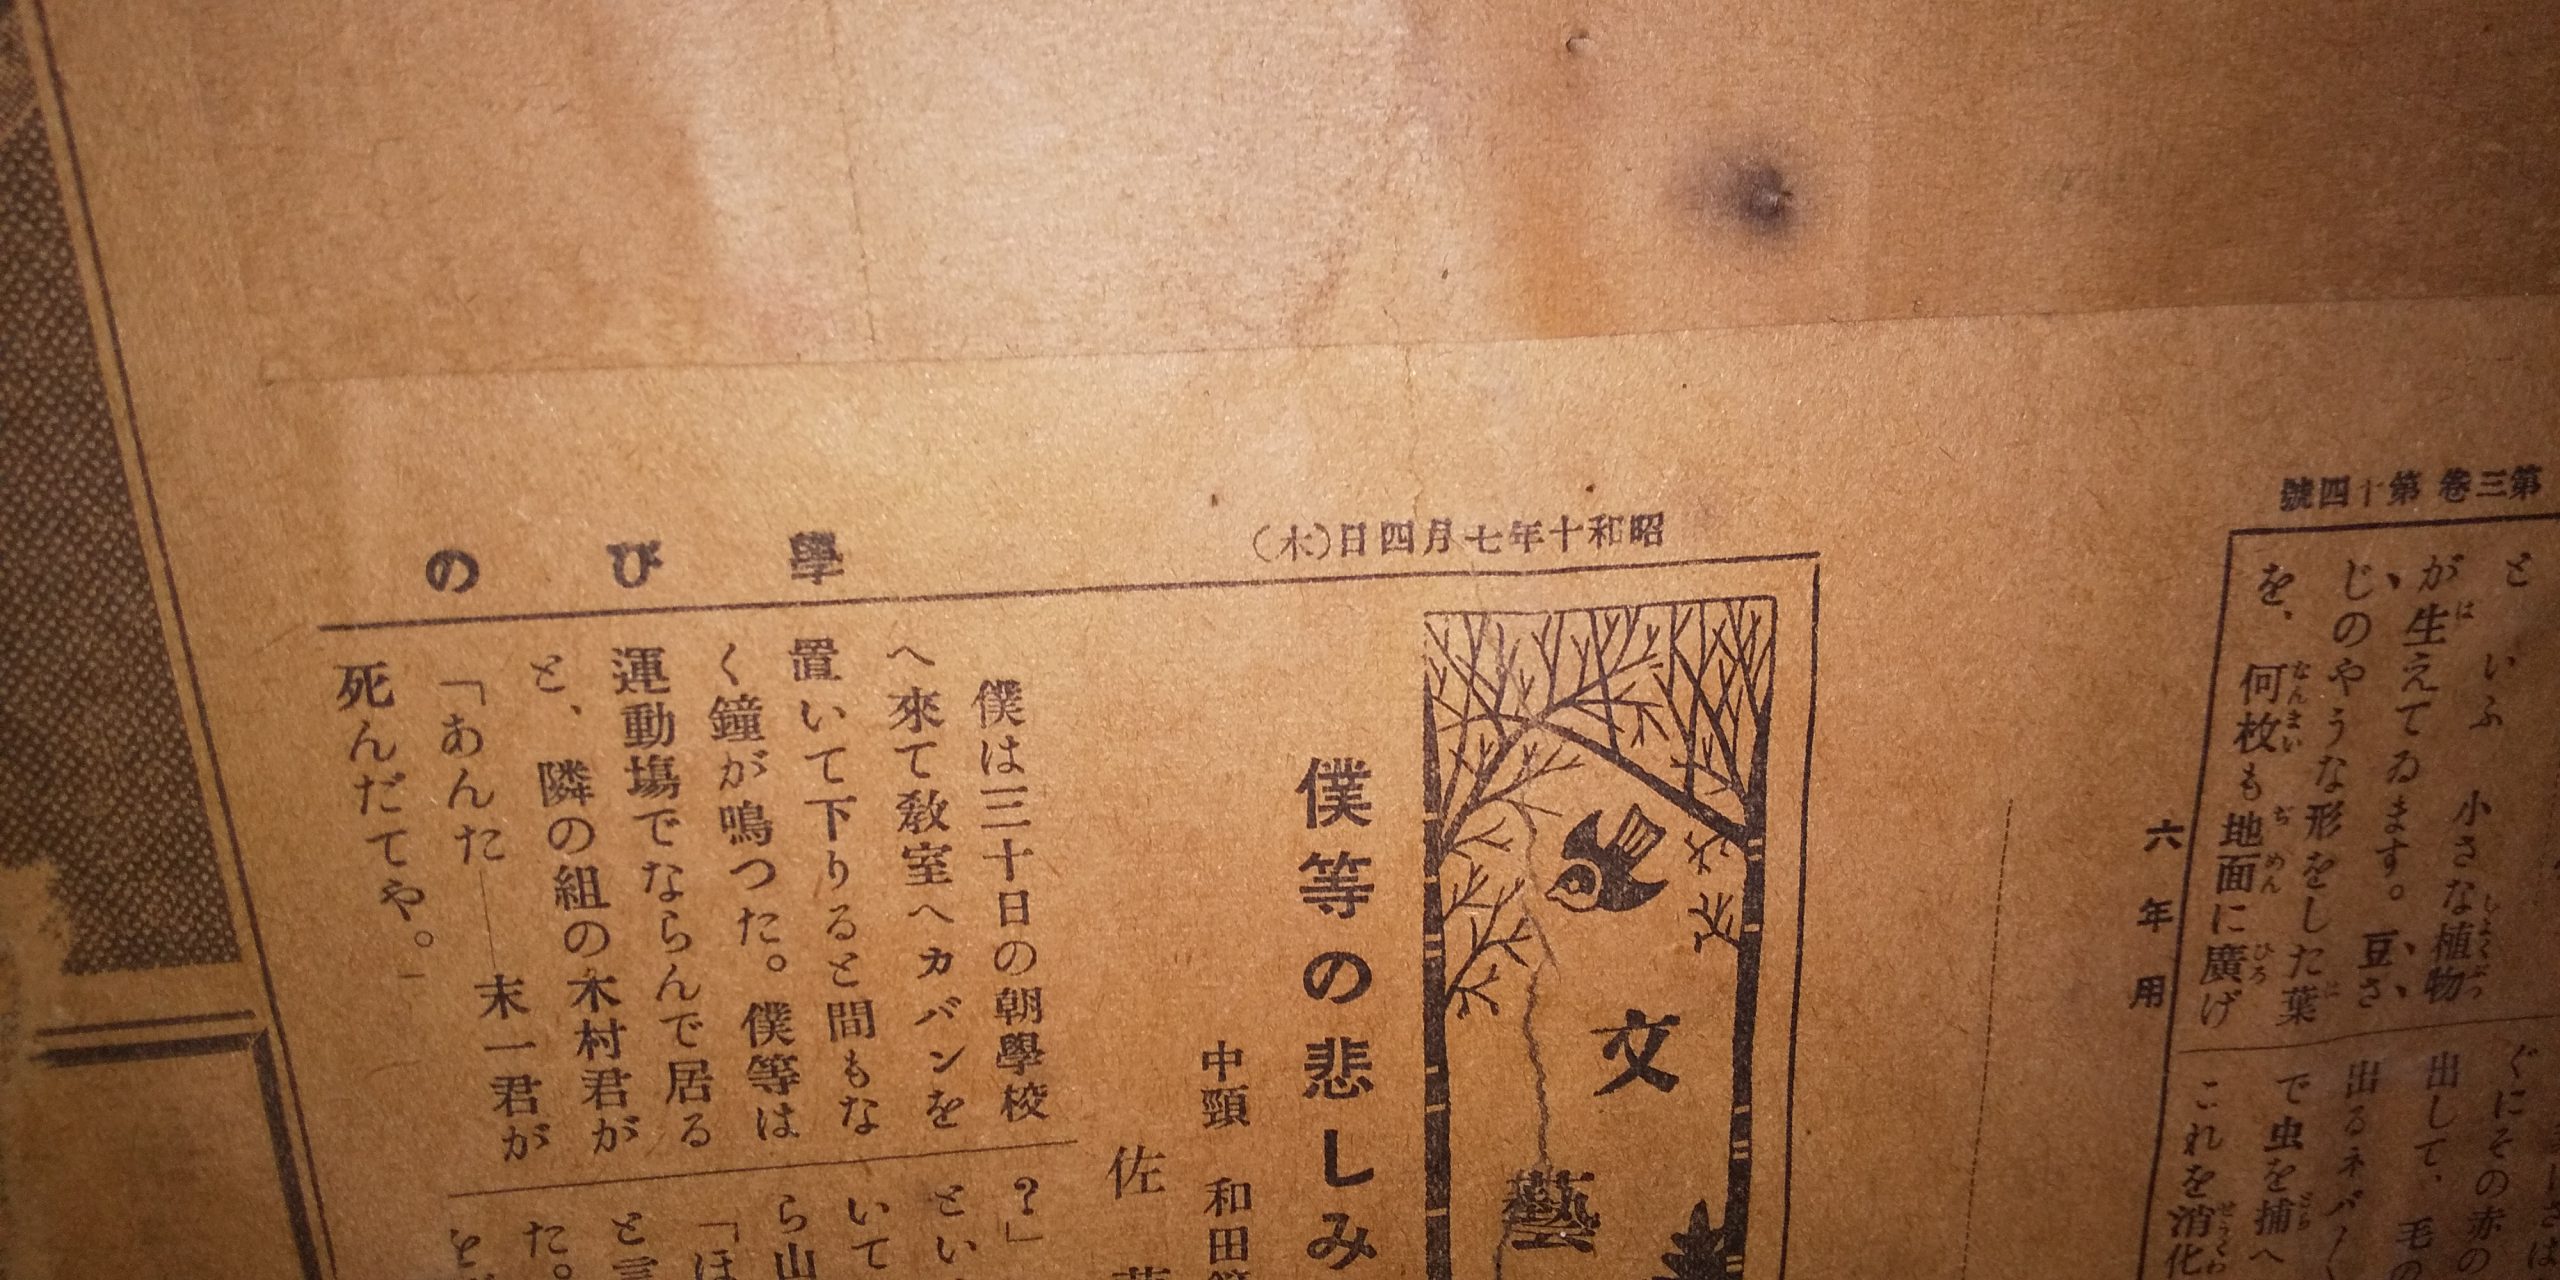 第三卷 第十四號
六年用
といふ 小さな植物
が生えてゐます。豆さ
じのやうな形をした葉
を、何枚も地面に廣げ
ぐにその赤の
出して、毛の
出るネバ〱
で虫を捕へ
これを消化
昭和十年七月四日(木)
學びの
文藝
僕等の悲しみ
中頸 和田
佐
僕は三十日の朝學校
へ來て教室へカバンを
置いて下りると間もな
く鐘が鳴つた。僕等は
運動場でならんで居る
と、隣の組の木村君が
「あんた――末一君が
死んだてや。」
?」
とい
いて
ら山
「ほ
と言
た。
を